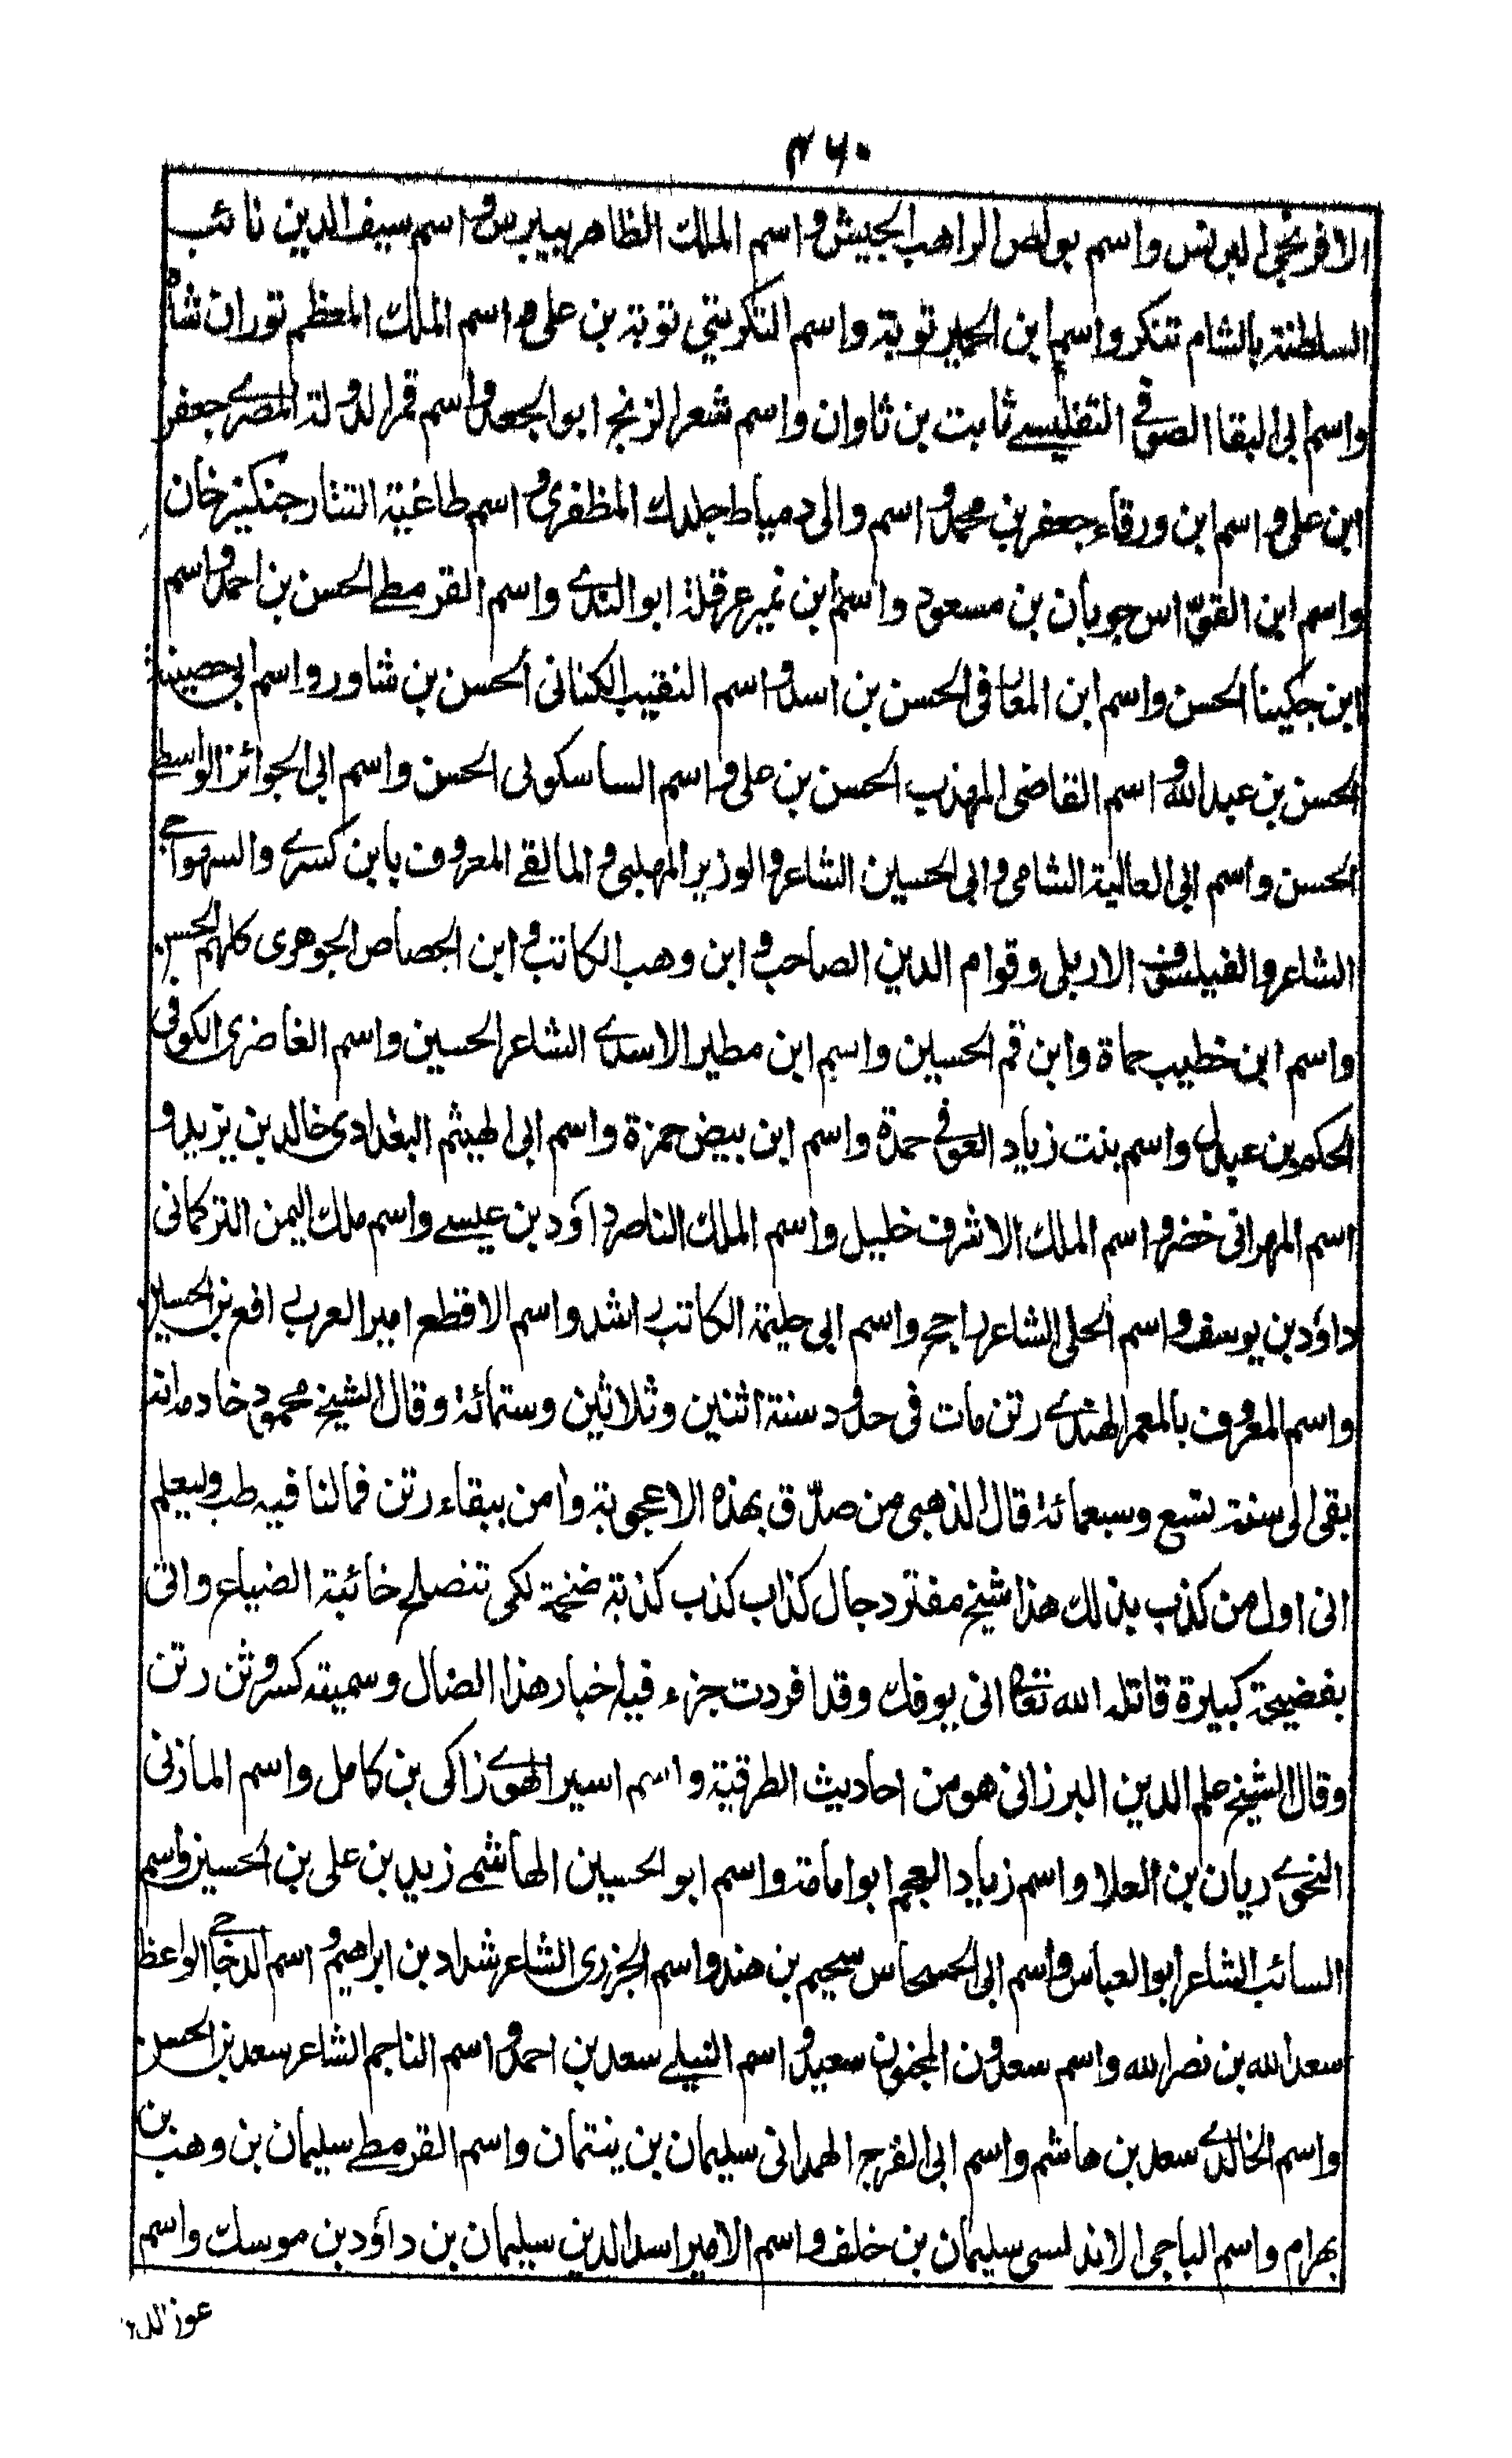 ۴۶۰
الافرنجی البرنس واسم بولص الراهب الحبیش واسم الملك الظاهر بیبرس واسم سیف الدین نائب
السلطنة بالشام تنکر واسم ابن الحمیر توبة واسم التکریتی توبة بن علی واسم الملك المعظم توران شاه
واسم ابی البقا الصوفی التفلیسے ثابت بن ثاوان واسم شعر الزنج ابو الجعد واسم قمر الدولة المصرے جعفر
ابن علی واسم ابن ورقاء جعفر بن محمد واسم والی دمیاط جلدك المظفری واسم طاغیة التتار جنکیز خان
واسم ابن القوّاس جوبان بن مسعود واسم ابن نمیر عرقلة ابو الندے واسم القرمطے الحسن بن احمد واسم
ابن جکینا الحسن واسم ابن المعافی الحسن بن اسد واسم النقیب الکنانی الحسن بن شاور واسم ابی حصینة
الحسن بن عبد الله واسم القاضی المهذب الحسن بن علی واسم الساسکونی الحسن واسم ابی الجوائز الواسطے
الحسن واسم ابی العالیة الشامی وابی الحسین الشاعر والوزیر المهلبی والمالقے المعروف بابن کسرے والسهواجے
الشاعر والفیلسوف الاربلی وقوام الدین الصاحب وابن وهب الکاتب وابن الجصاص الجوهری کلهم الحسن
واسم ابن خطیب حماة وابن قم الحسین واسم ابن مطیر الاسدے الشاعر الحسین واسم الغاضری الکوفی
الحکم بن عبدل واسم بنت زیاد العوفی حمدة واسم ابن بیض حمزة واسم ابی الهیثم البغدادی خالد بن یزید و
اسم المهرانی خضر واسم الملك الاشرف خلیل واسم الملك الناصر داؤد بن عیسے واسم ملك الیمن الترکمانی
داؤد بن یوسف واسم الحلی الشاعر راجح واسم ابی حلیمة الکاتب اشد واسم الاقطع امیر العرب افع بن الحسین
واسم المعروف بالمعمر الهندے رتن مات فی حدود سنة اثنین وثلاثین وستمائة وقال الشیخ محمود خادمه انه
بقی الی سنة تسع وسبعمائة قال الذهبی من صدّق بهذه الاعجوبة وامن ببقاء رتن فما لنا فیه طب ولیعلم
انی اول من کذب بذلك هذا شیخ مفتر دجال کذاب کذب کذبة ضخمة لکی تنصلح خائبة الضیاع واتی
بفضیحة کبیرة قاتله الله تعالی انی یوفك وقد افردت جزء فیه اخبار هذا الضال وسمیته کسر وثن رتن
وقال الشیخ علم الدین البرزانی هو من احادیث الطرقیة واسم اسیر الهوے زاکی بن کامل واسم المازنی
النحوے ریان بن العلا واسم زیاد العجم ابو امامة واسم ابو الحسین الهاشمے زید بن علی بن الحسین واسم
السائب الشاعر ابو العباس واسم ابی الحسحاس سحیم بن هند واسم الجزری الشاعر شداد بن ابراهیم واسم الدجاجے الواعظ
سعد الله بن نصر الله واسم سعدون المجنون سعید واسم النیلے سعد بن احمد واسم الناجم الشاعر سعد بن الحسن
واسم الخالدے سعد بن هاشم واسم ابی الفرج الهمدانی سلیمان بن ینتمان واسم القرمطے سلیمان بن وهب بن
بهرام واسم الباجی الاندلسی سلیمان بن خلف واسم الامیر اسد الدین سلیمان بن داؤد بن موسك واسم